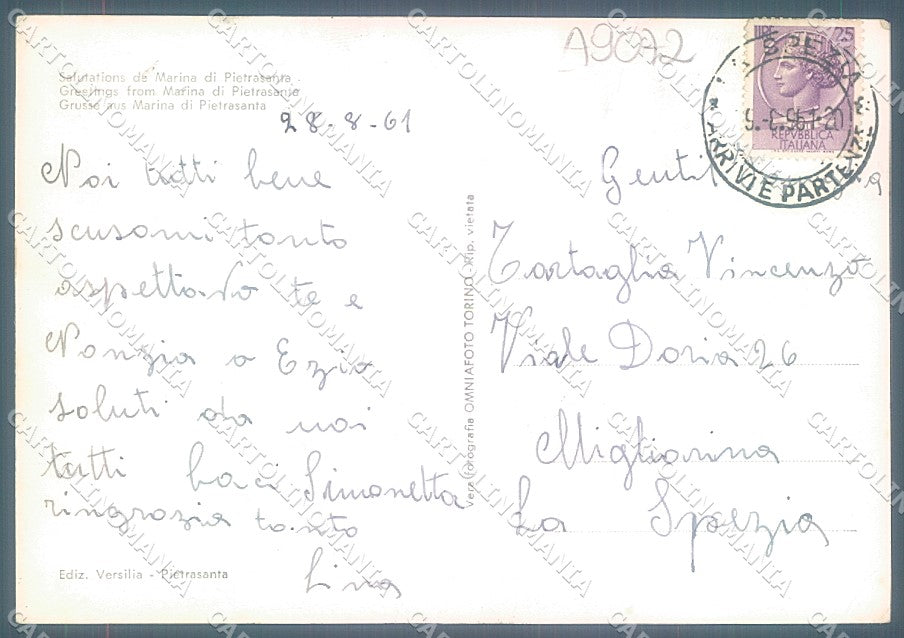 A9072
Salutations de Marina di Pietrasanta
Greetings from Marina di Pietrasanta
Grusse aus Marina di Pietrasanta
28-8-61
Noi tutti bene
scusami tanto
aspettavo te e
Nonzia a Ezio
saluti da noi
tutti baci Simonetta
ringrazia tanto
Lina
Ediz. Versilia - Pietrasanta
Vera fotografia OMNIAFOTO TORINO - Rip. vietata
LIRE 25
REPVBBLICA
ITALIANA
SPEZIA
ARRIVI E PARTENZE
Gentil
Tartaglia Vincenzo
Viale Doria 26
Migliarina
La Spezia
CARTOLINOMANIA